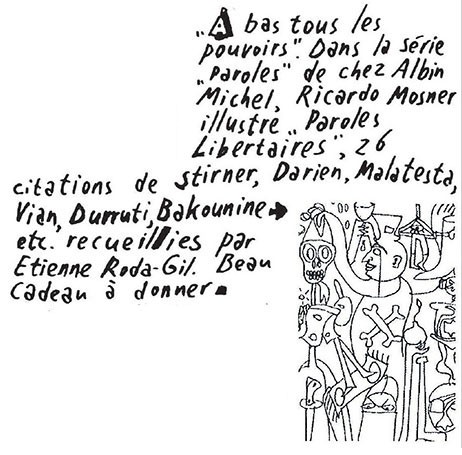 „A bas tous les
pouvoirs". Dans la série
„Paroles" de chez Albin
Michel, Ricardo Mosner
illustre „Paroles
Libertaires", 26
citations de Stirner, Darien, Malatesta,
Vian, Durruti, Bakounine →
etc. recueillies par
Etienne Roda-Gil. Beau
cadeau à donner.